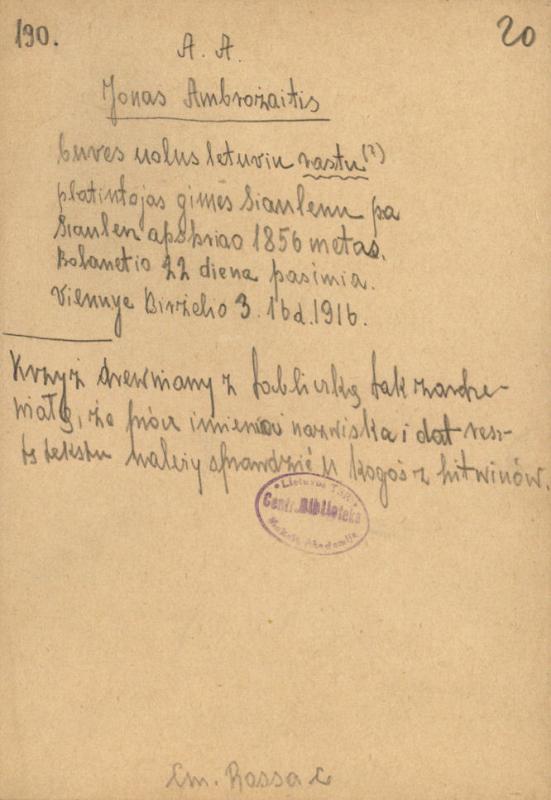 190.
20
A. A.
Jonas Ambrożaitis
buves uolus letuviu rastu (?)
platintojas gimes Siaulenu pa
Siaulen apskriao 1856 metas.
Bolanetio 22 diena pasimia.
Viennye Birżelio 3. 16 d. 1916.
Krzyż drewniany z tabliczką tak zardze-
wiałą, że prócz imienia i nazwiska i dat resz-
tę tekstu należy sprawdzić u kogoś z Litwinów.
Lietuvos TSR
Centr. Biblioteka
Mokslų Akademija
Cm. Rossa